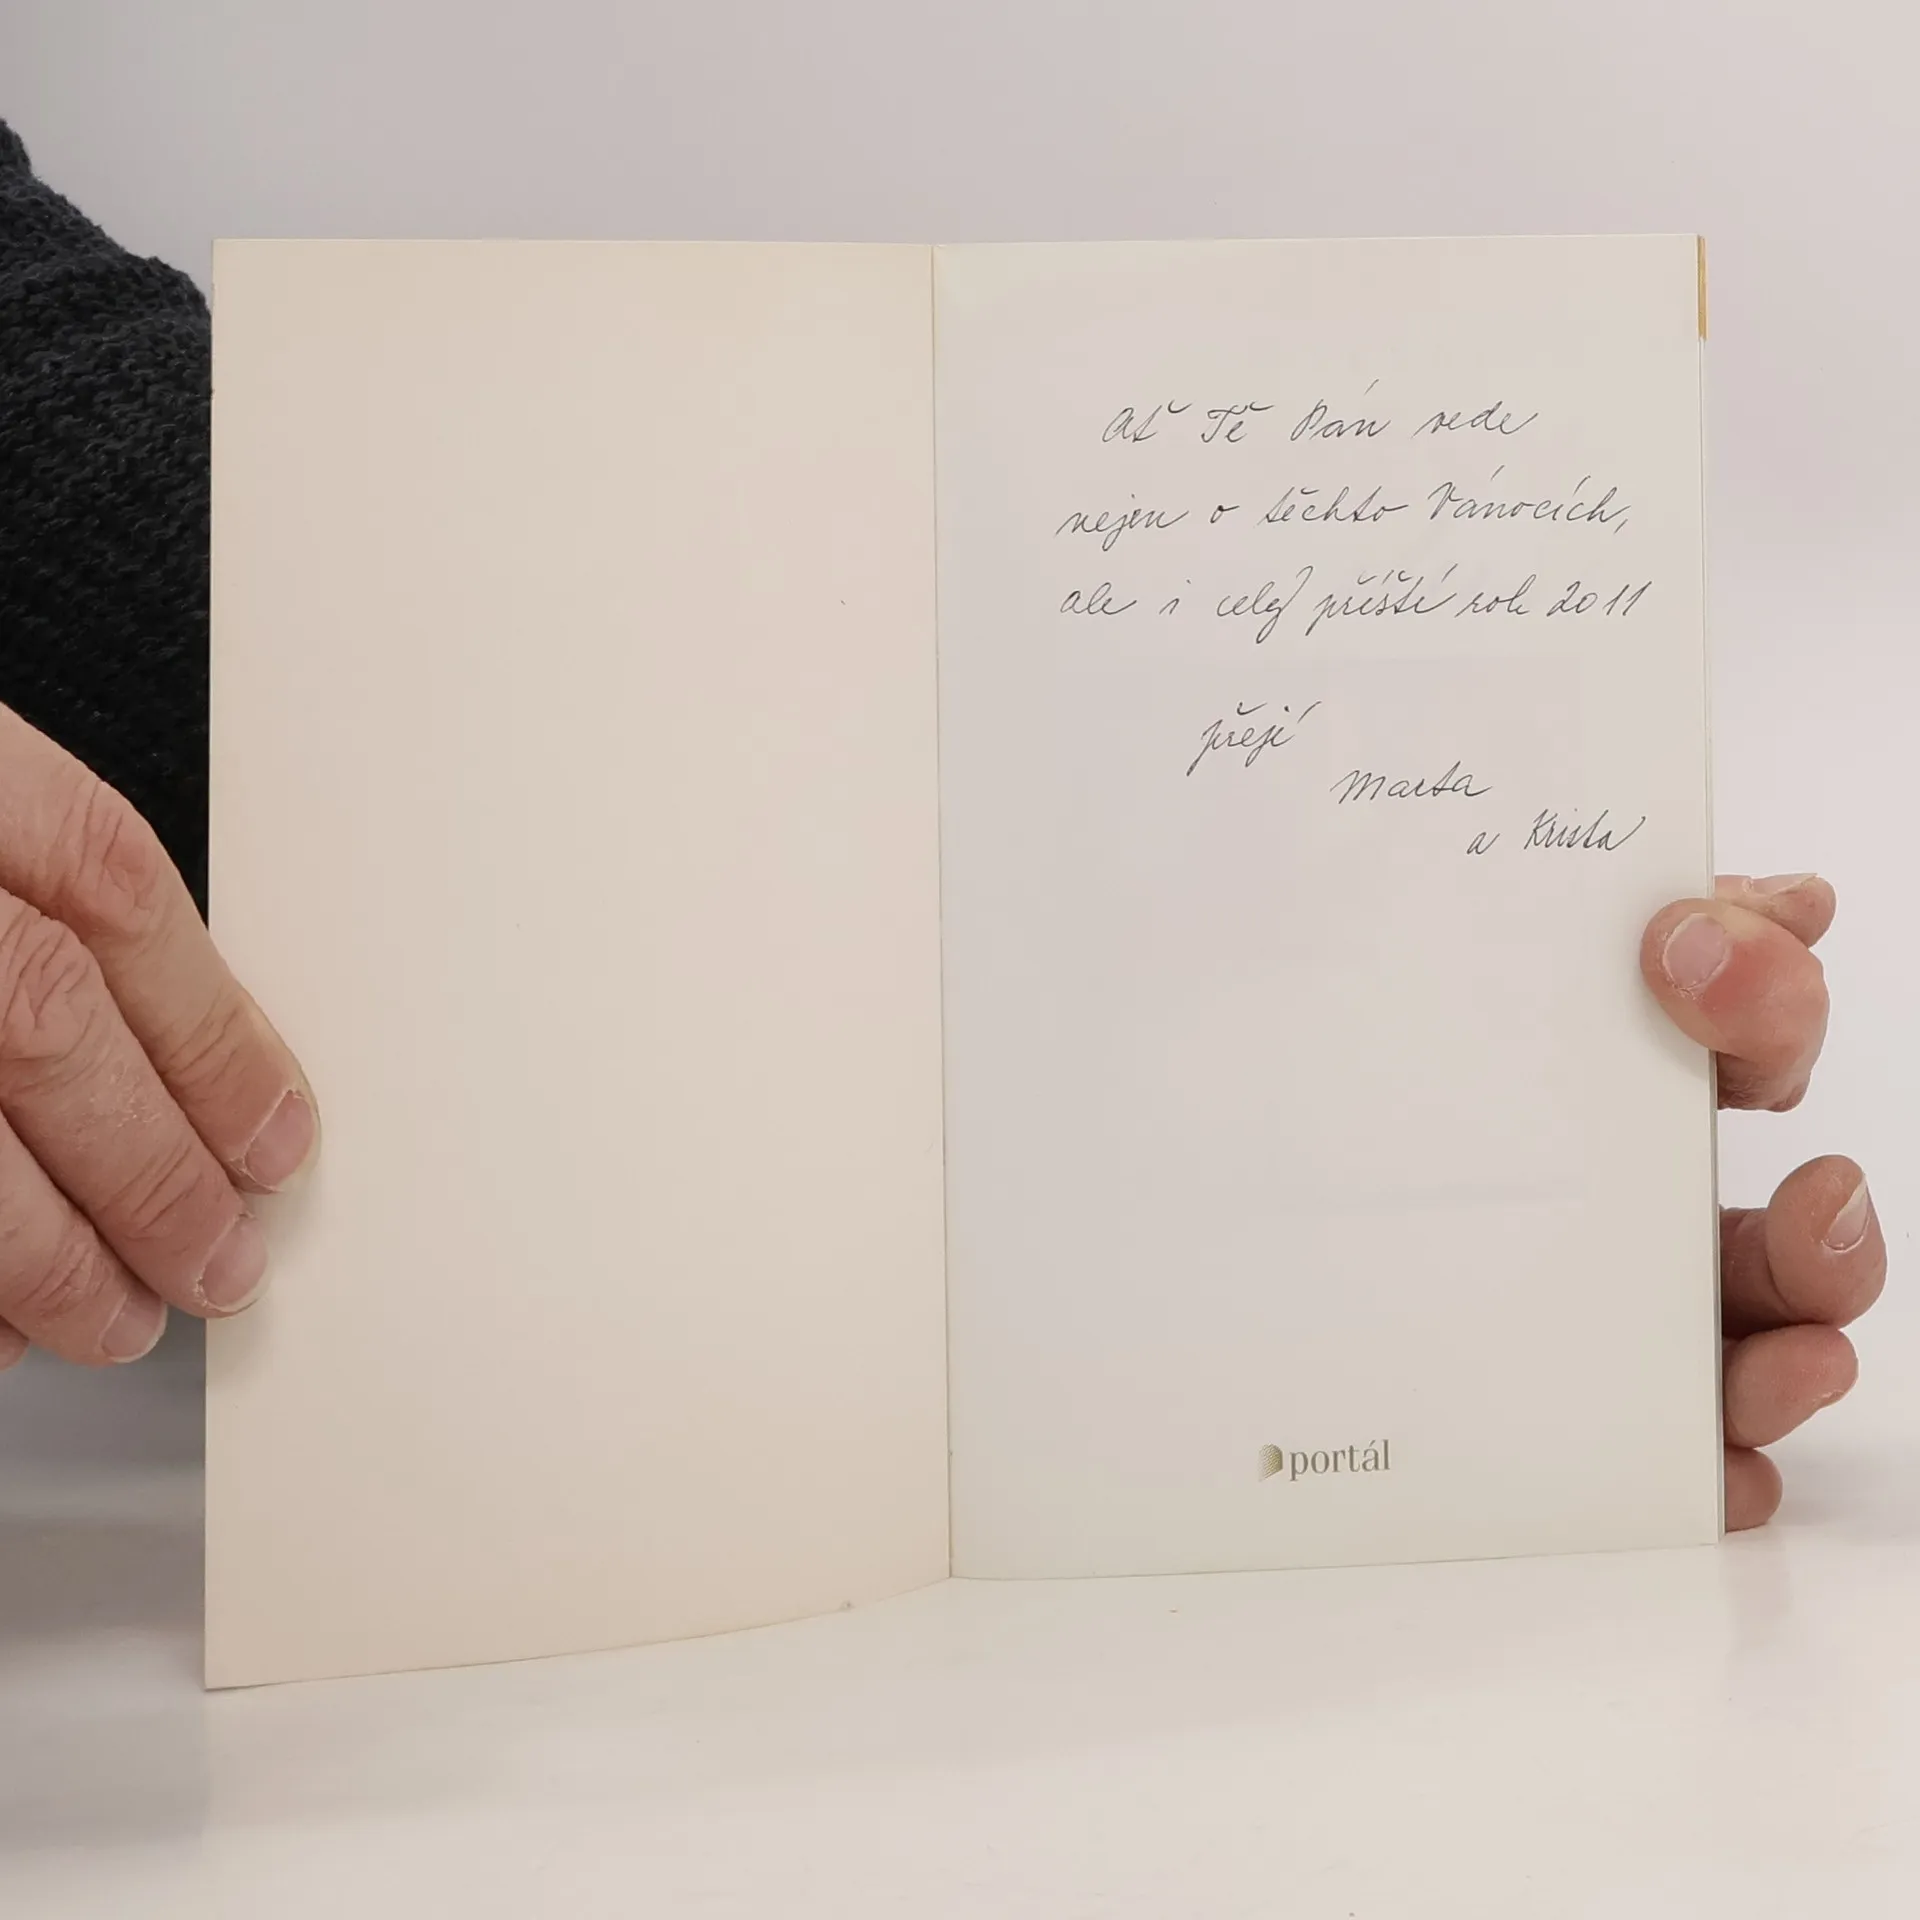 Ať Tě Pán vede
nejen o těchto Vánocích,
ale i celý příští rok 2011
přejí
Marta
a Krista
portál